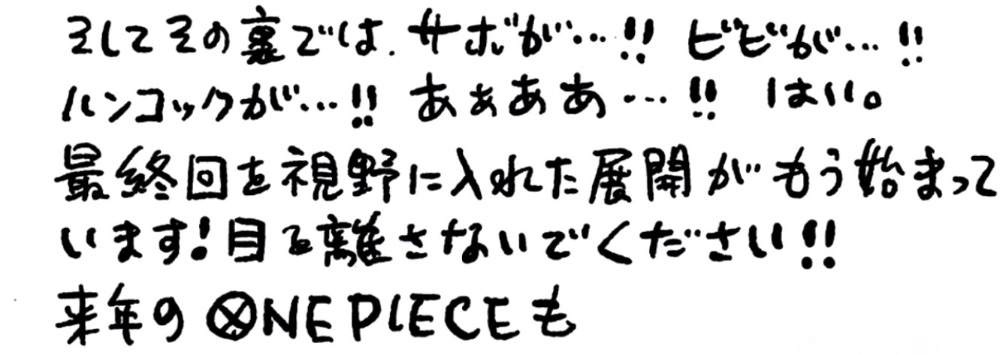 そしてその裏では、サボが…!! ビビが…!!
ハンコックが…!! あぁああ…!! はい。
最終回を視野に入れた展開がもう始まって
います!目を離さないでください!!
来年のONE PIECEも